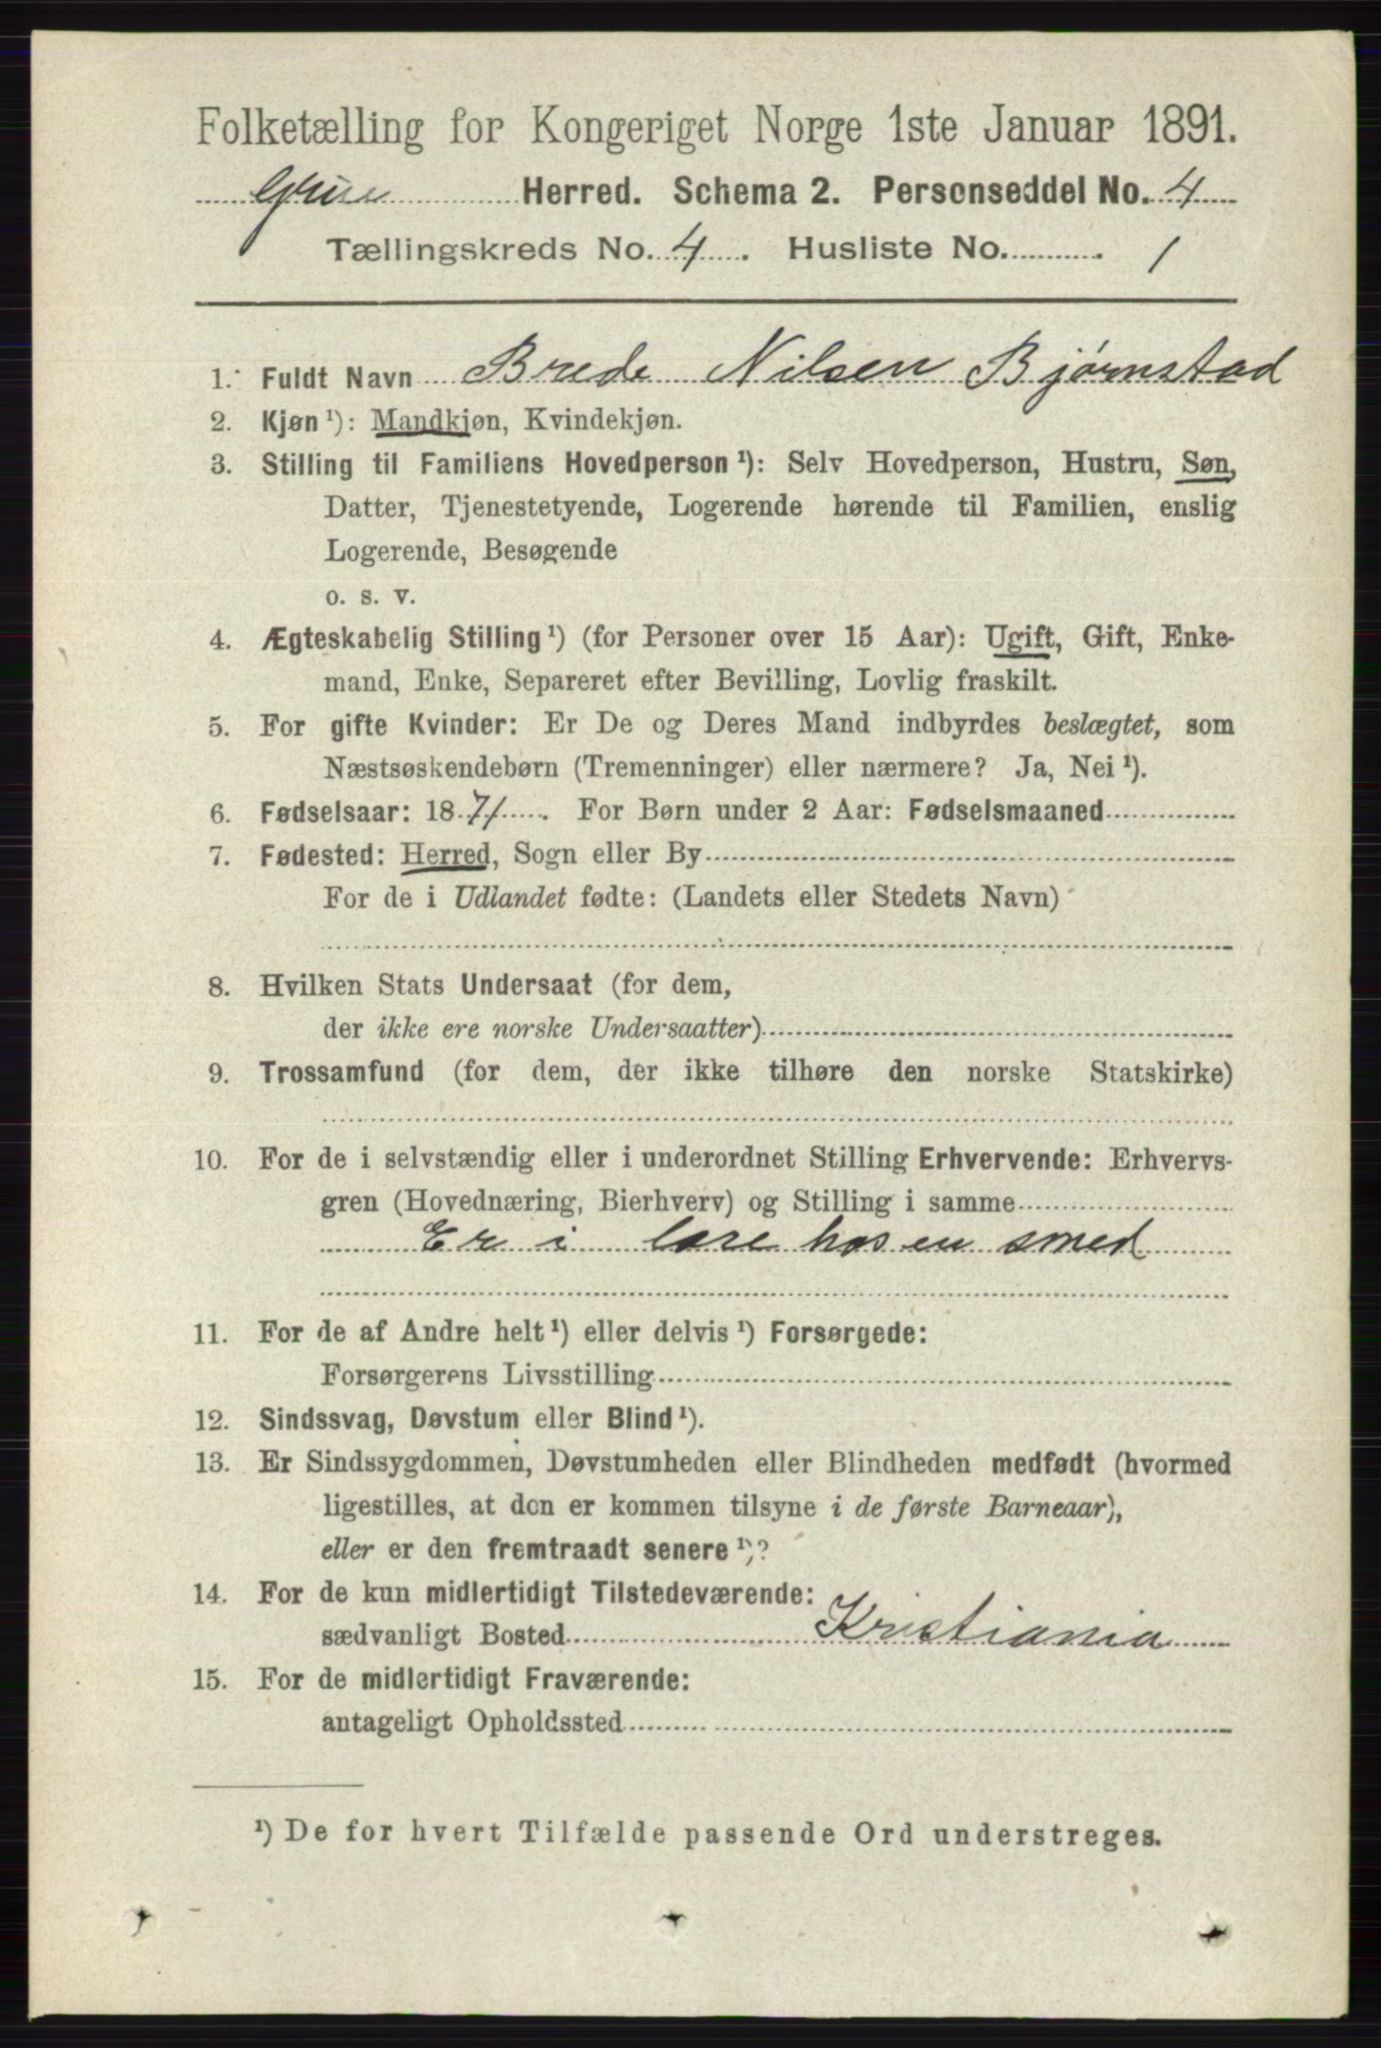 Folketælling for Kongeriget Norge 1ste Januar 1891.
Grue Herred. Schema 2. Personseddel No. 4
Tællingskreds No. 4. Husliste No. 1
1. Fuldt Navn Brede Nilsen Bjørnstad
2. Kjøn¹): Mandkjøn, Kvindekjøn.
3. Stilling til Familiens Hovedperson¹): Selv Hovedperson, Hustru, Søn,
Datter, Tjenestetyende, Logerende hørende til Familien, enslig
Logerende, Besøgende
o. s. v.
4. Ægteskabelig Stilling¹) (for Personer over 15 Aar): Ugift, Gift, Enke-
mand, Enke, Separeret efter Bevilling, Lovlig fraskilt.
5. For gifte Kvinder: Er De og Deres Mand indbyrdes beslægtet, som
Næstsøskendebørn (Tremenninger) eller nærmere? Ja, Nei¹).
6. Fødselsaar: 1871. For Børn under 2 Aar: Fødselsmaaned
7. Fødested: Herred, Sogn eller By
For de i Udlandet fødte: (Landets eller Stedets Navn)
8. Hvilken Stats Undersaat (for dem,
der ikke ere norske Undersaatter)
9. Trossamfund (for dem, der ikke tilhøre den norske Statskirke)
10. For de i selvstændig eller i underordnet Stilling Erhvervende: Erhvervs-
gren (Hovednæring, Bierhverv) og Stilling i samme
Er i lære hos en smed
11. For de af Andre helt¹) eller delvis¹) Forsørgede:
Forsørgerens Livsstilling
12. Sindssvag, Døvstum eller Blind¹).
13. Er Sindssygdommen, Døvstumheden eller Blindheden medfødt (hvormed
ligestilles, at den er kommen tilsyne i de første Barneaar),
eller er den fremtraadt senere¹)?
14. For de kun midlertidigt Tilstedeværende:
sædvanligt Bosted Kristiania
15. For de midlertidigt Fraværende:
antageligt Opholdssted
¹) De for hvert Tilfælde passende Ord understreges.